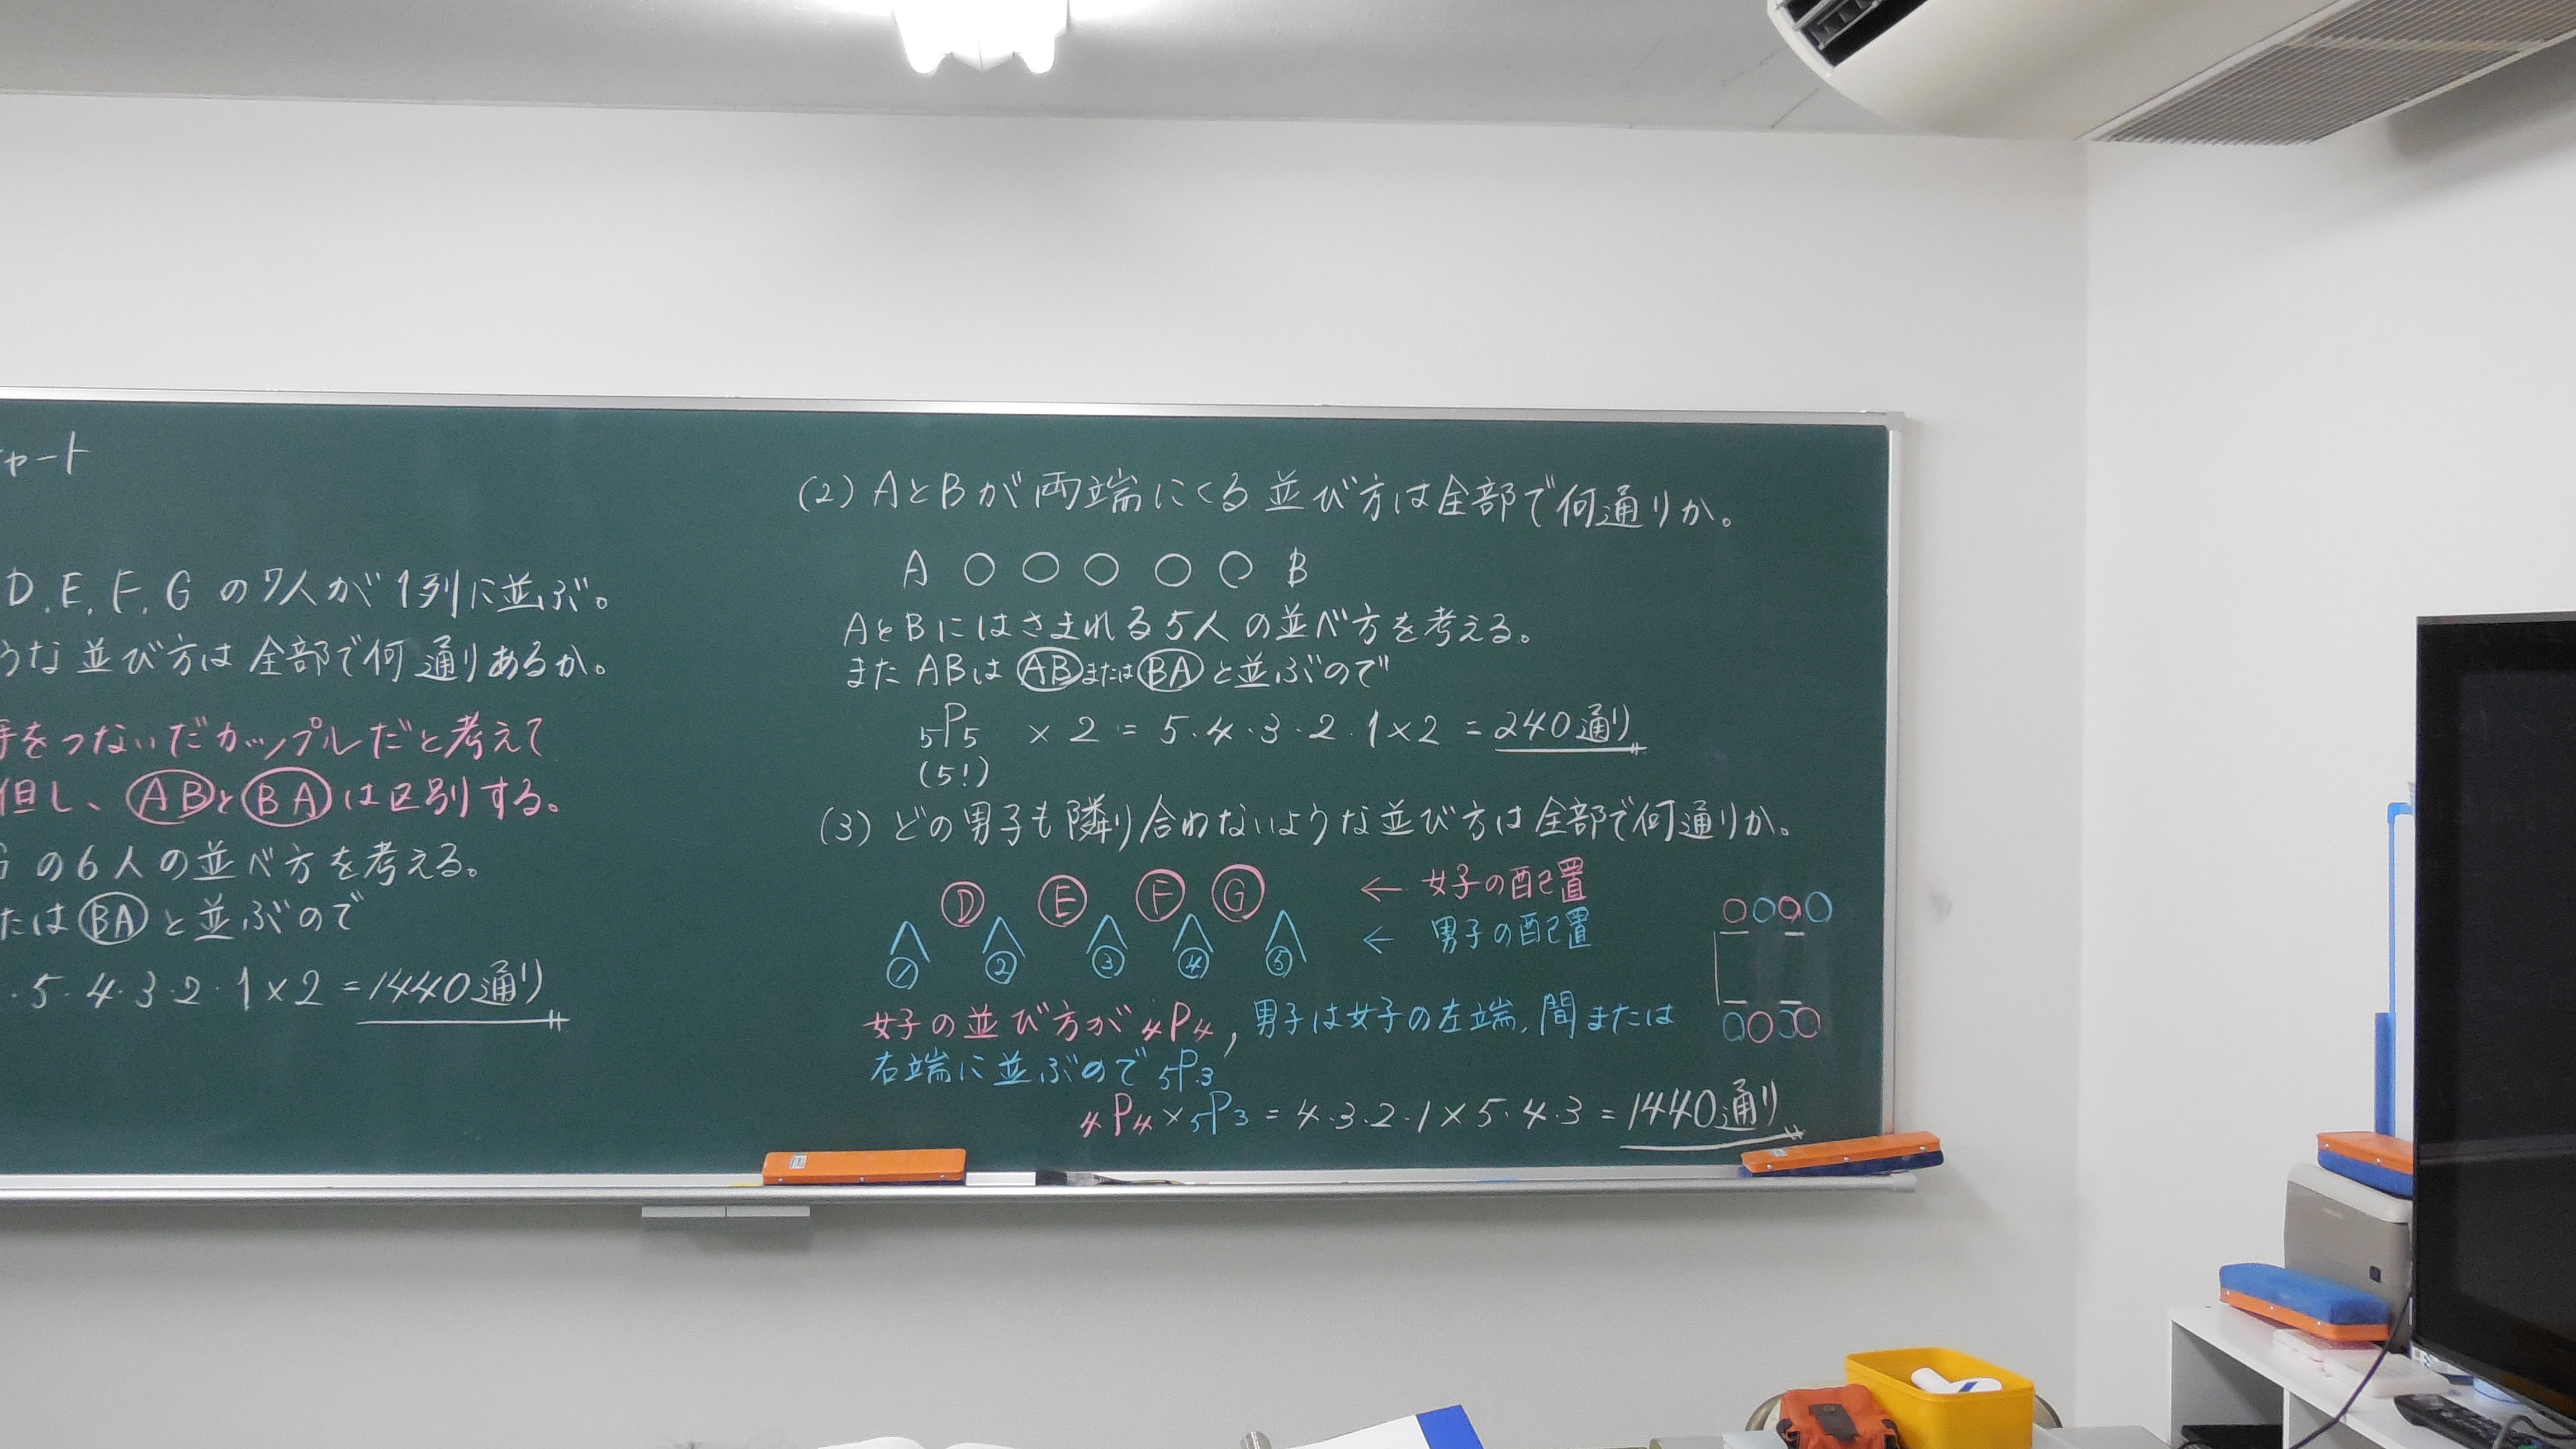 チャート
D, E, F, G の7人が1列に並ぶ。
うな並び方は全部で何通りあるか。
手をつないだカップルだと考えて
但し、ABとBAは区別する。
G の6人の並べ方を考える。
たはBAと並ぶので
・5・4・3・2・1×2=1440通り
(2) AとBが両端にくる並び方は全部で何通りか。
A ○ ○ ○ ○ ○ B
AとBにはさまれる5人の並べ方を考える。
またABはABまたはBAと並ぶので
₅P₅ × 2 = 5・4・3・2・1×2 = 240通り
(5!)
(3) どの男子も隣り合わないような並び方は全部で何通りか。
D E F G ← 女子の配置
① ② ③ ④ ⑤ ← 男子の配置
女子の並び方が₄P₄, 男子は女子の左端, 間または
右端に並ぶので₅P₃
₄P₄×₅P₃=4・3・2・1×5・4・3=1440通り